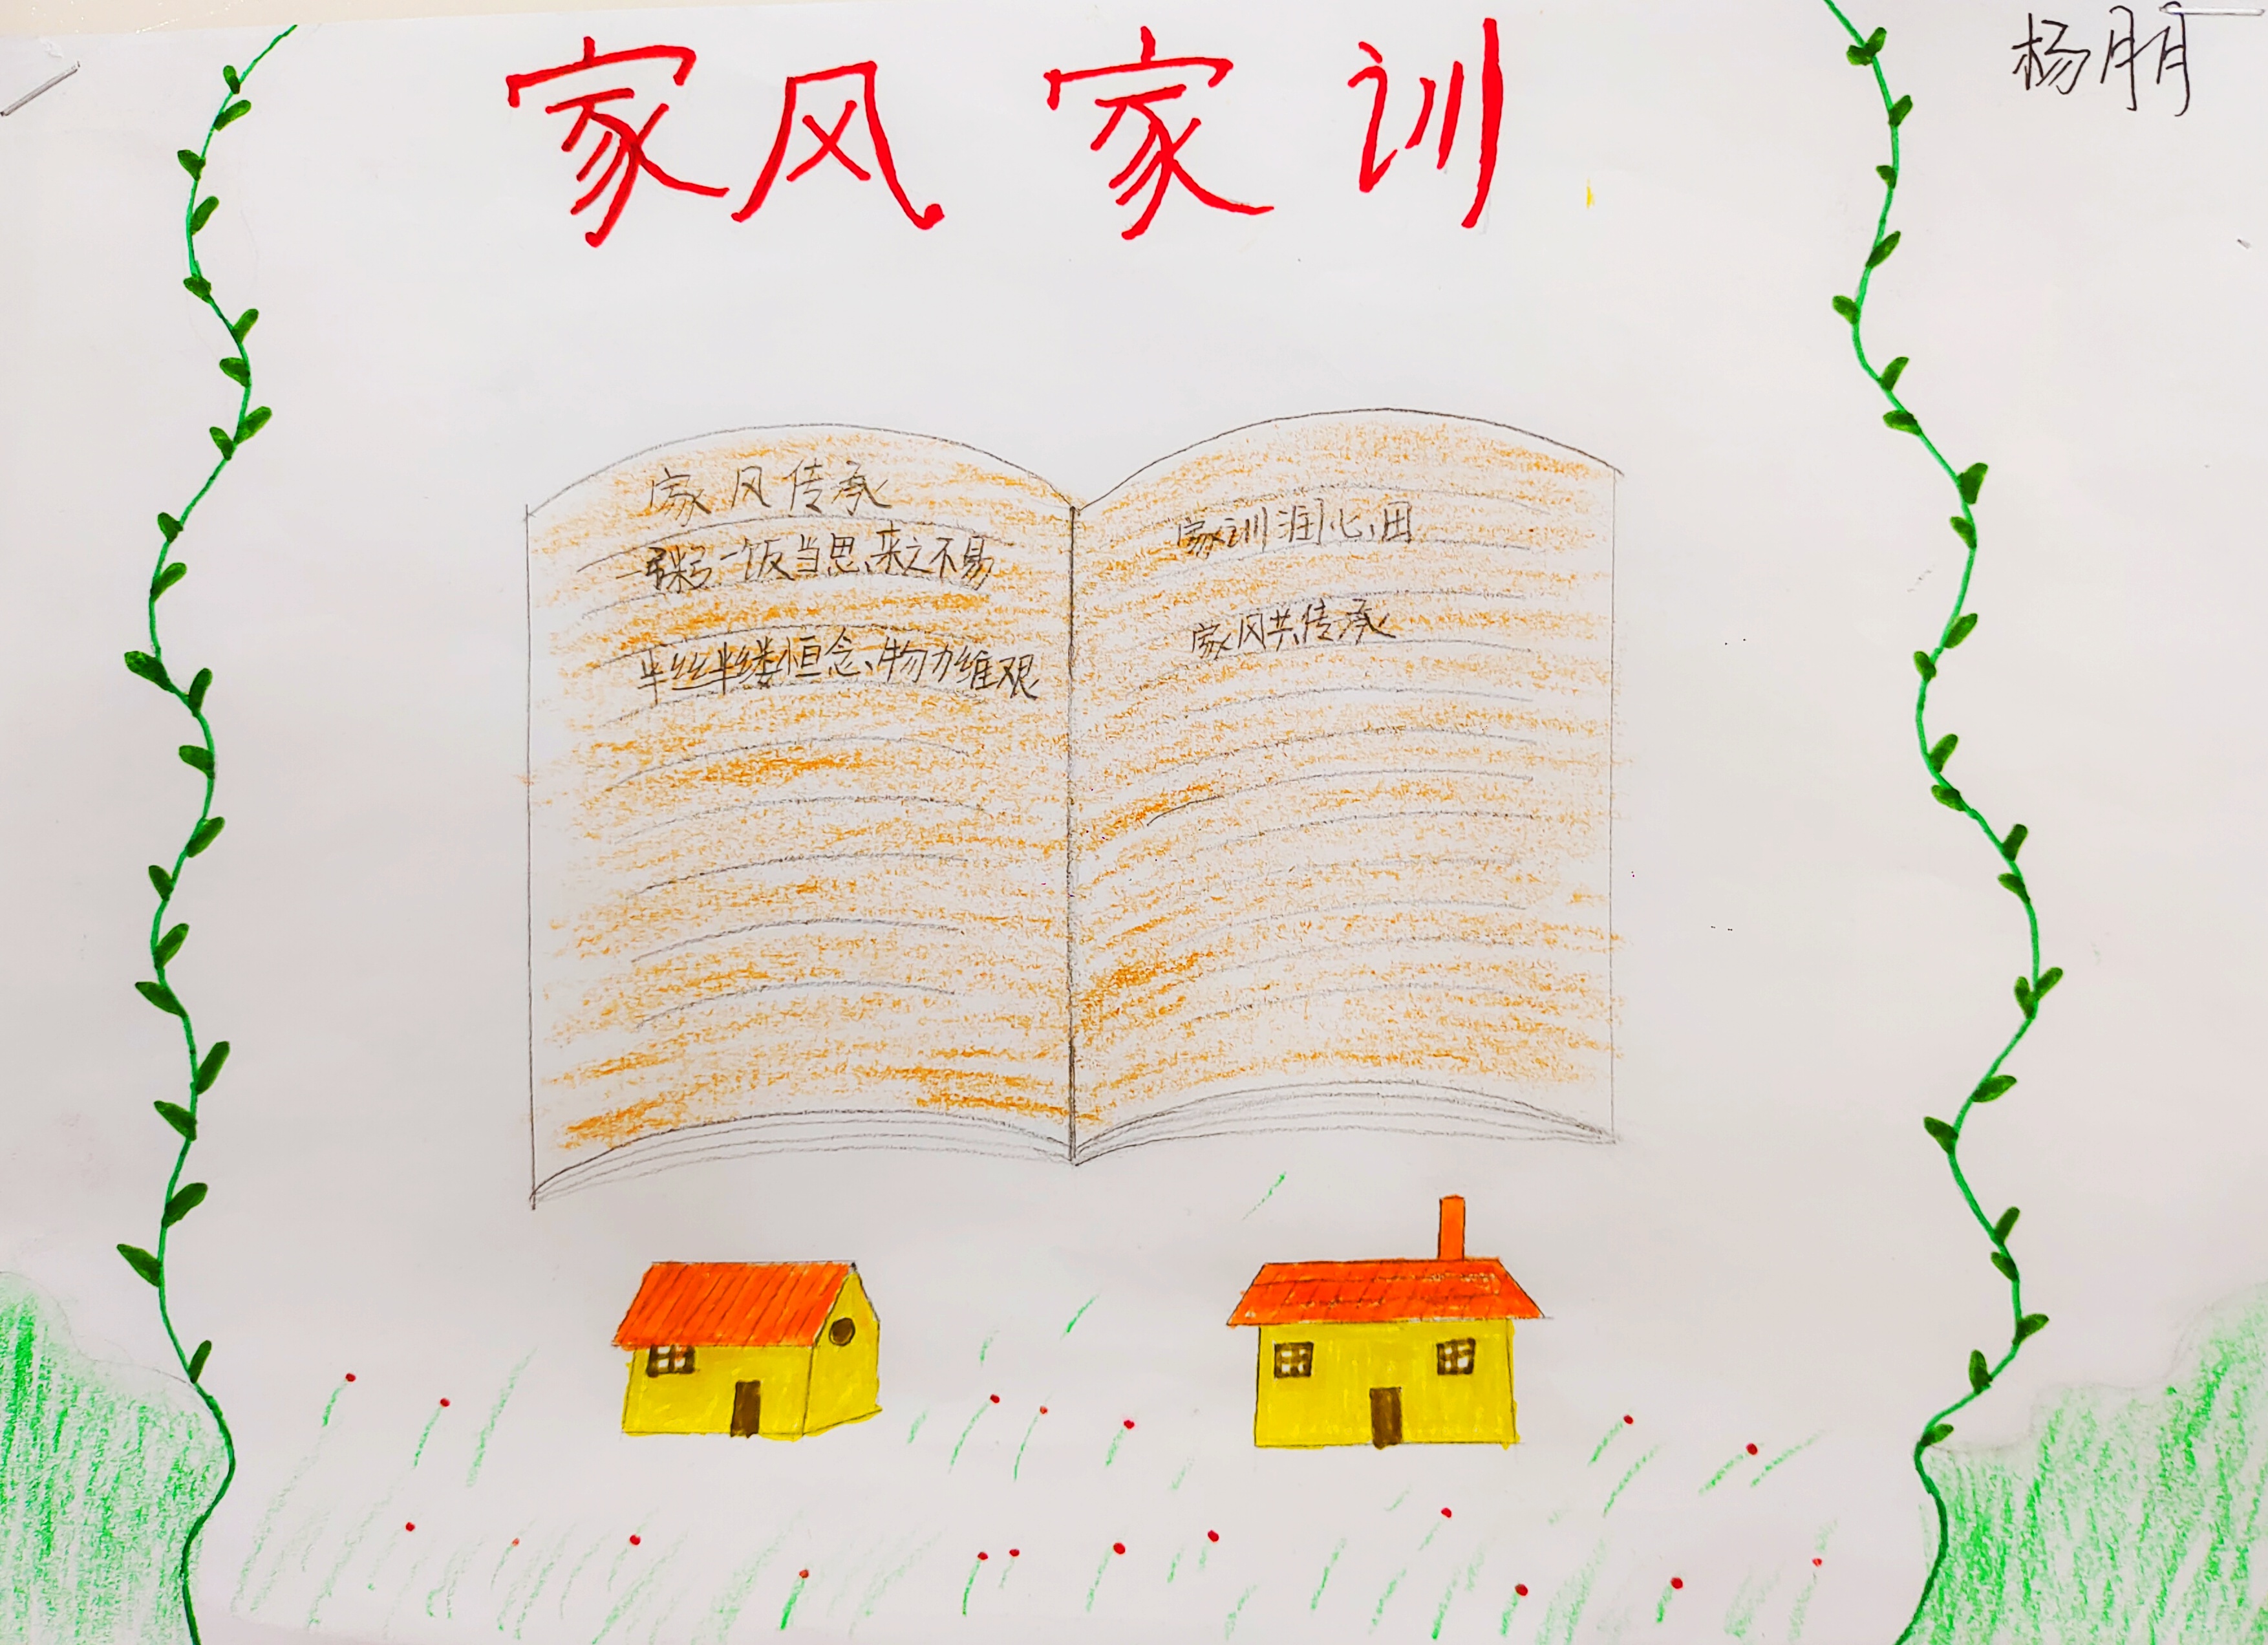 家风家训
杨朋
家风传承
一粥一饭当思来之不易
半丝半缕恒念物力维艰
家训润心田
家风共传承